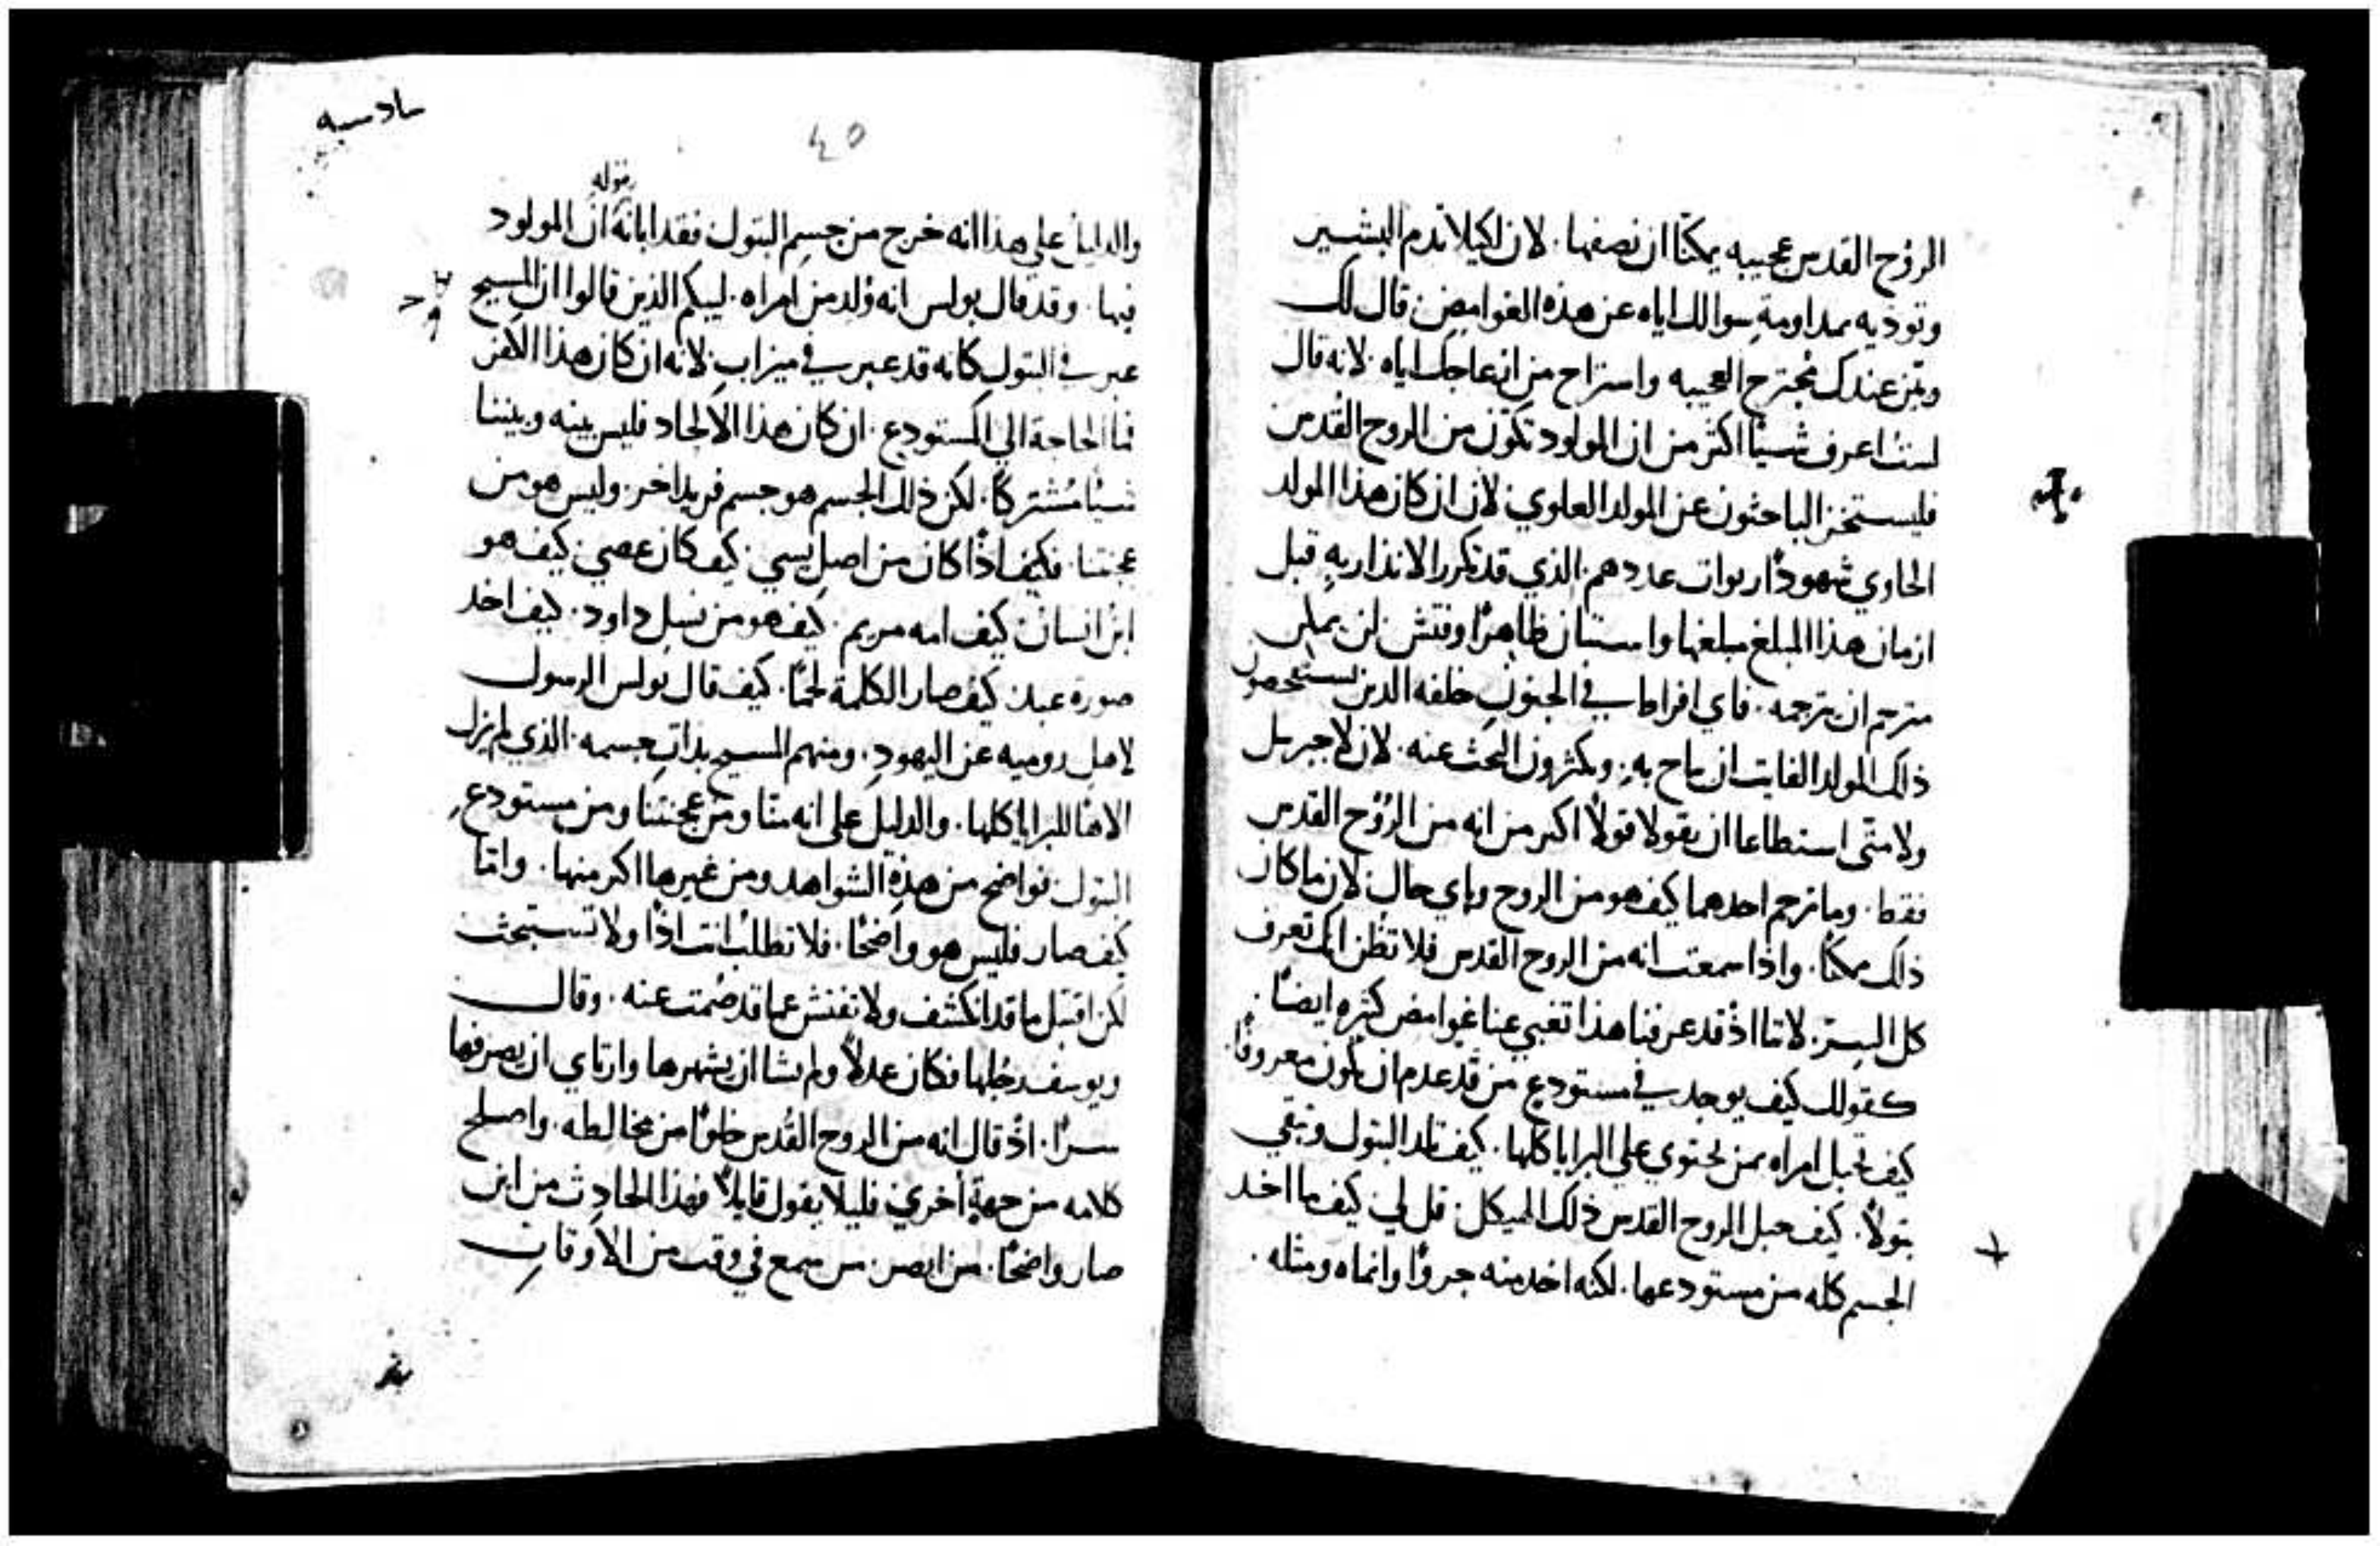 الروح القدس عجيبه يمكنّا ان نصفها. لان لكيلا تذم البشير
وتوذيه بمداومةِ سوالك اياه عن هذه الغوامض قال لك
وبيّن عندك مُجترح العجيبه واستراح من ازعاجك اياه. لانه قال
لستُ اعرف شيئًا اكثر من ان المولود تكوّن من الروح القُدس
فليستخز الباحثون عن المولد العلوي. لان ان كان هذا المولد
الحاوي شهودًا ربوات عددهم. الذي قد تكرر الانذار بهِ قبل
ازمان هذا المبلغ مبلغها واستبان ظاهرًا وفتش لن يمكن
مترجم ان يترجمه. فاي افراط في الجنونِ خلفه الذين يستفحصون
ذلك المولد الفايت ان يباح بهِ. ويكثرون البحث عنه. لان لا جبريل
ولا متّى استطاعا ان يقولا قولاً اكبر من انه من الروح القدس
فقط. وما ترجم احدهما كيف هو من الروح وباي حال. لان ما كان
ذلك ممكنًا. واذا سمعت انه من الروح القدس فلا تظُن انك تعرف
كل السِتر. لاننا اذْ قد عرفنا هذا تغبي عنا غوامض كثيره ايضًا.
كقولك كيف يوجد في مستودع من قد عدم ان يكون معروفًا.
كيف تحبل امراه بمن يحتوي على البرايا كلها. كيف تلد البتول وتبقي
بتولاً. كيف جبل الروح القدس ذلك الهيكل. قل لي كيف ما اخد
الجسم كله من مستودعها. لكنه اخد منه جزوًا وانماه ومثله.
سادسيه
٤٥
بقوله
والدليل على هذا انه خرج من جسمِ البتول فقد ابانهُ انّ المولود
فيها. وقد قال بولس انه وُلد من امراه. ليبكم الذين قالوا ان المسيح
عبر في البتولِ كانه قد عبر في ميزابٍ. لانه ان كان هذا الامر
فما الحاجة الي المستودع. ان كان هذا الالحاد فليس بينه وبيننا
شيئًا مُشتركًا. لكن ذلك الجسم هو جسم فريد اخر. وليس هو من
عجنتنا. فكيف اذًا كان من اصلِ يسي. كيف كان عصي. كيف هو
ابن انسان. كيف امه مريم. كيف هو من نسلِ داود. كيف اخد
صورة عبد. كيف صار الكلمة لحمًا. كيف قال بولس الرسول
لاهل روميه عن اليهودِ. ومنهم المسيح بذاتِ جسمه. الذي لم يزل
الاهًا للبرايا كلها. والدليل على انه منّا ومن عجنتنا ومن مستودعِ
البتول. فواضح من هذهِ الشواهد ومن غيرها اكبر منها. وامّا
كيف صار فليس هو واضحًا. فلا تطلبْ انت اذًا ولا تستبحث
لكن اقتبل ما قد انكشف ولا تفتش عما قد صُمت عنه. وقال
ويوسف رجُلها فكان عدلاً ولم يشا ان يشهرها وارتاي ان يصرفها
سرًا. اذْ قال انه من الروح القُدس خلوًا من مخالطه. واصلح
كلامه من جهةٍ أخري. فليلا يقول قايلاً فهذا الحادِث من اين
صار واضحًا. من ابصر. من سمع في وقت من الاوقاتِ